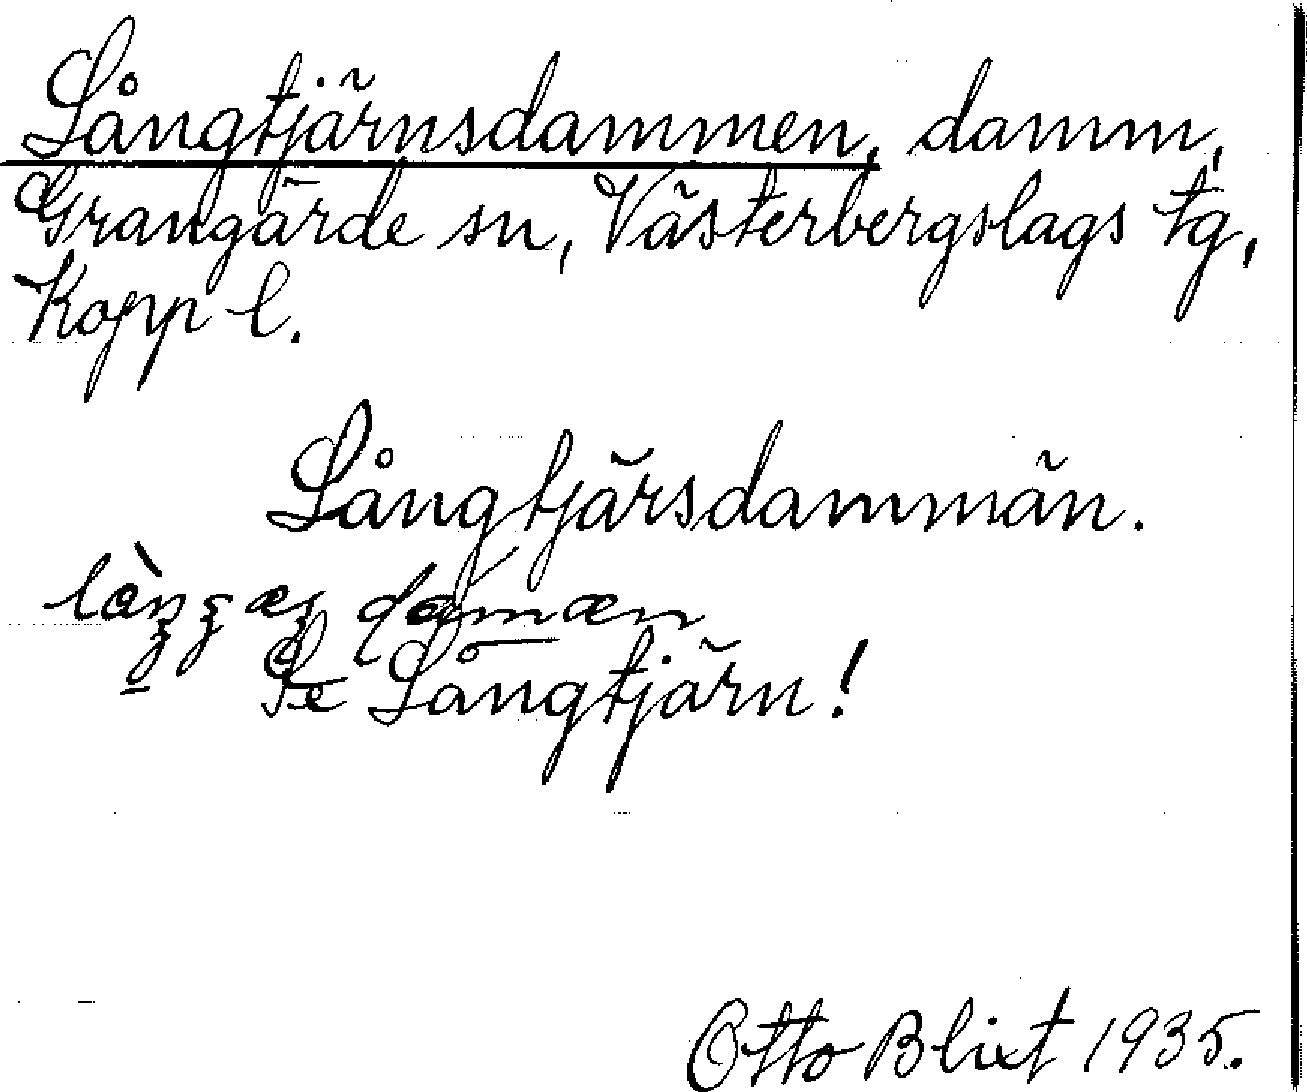 Långtjärnsdammen, damm,
Grangärde sn, Västerbergslags tg,
Kopp l.
Långtjärsdammän.
Se Långtjärn!
Otto Blixt 1935.